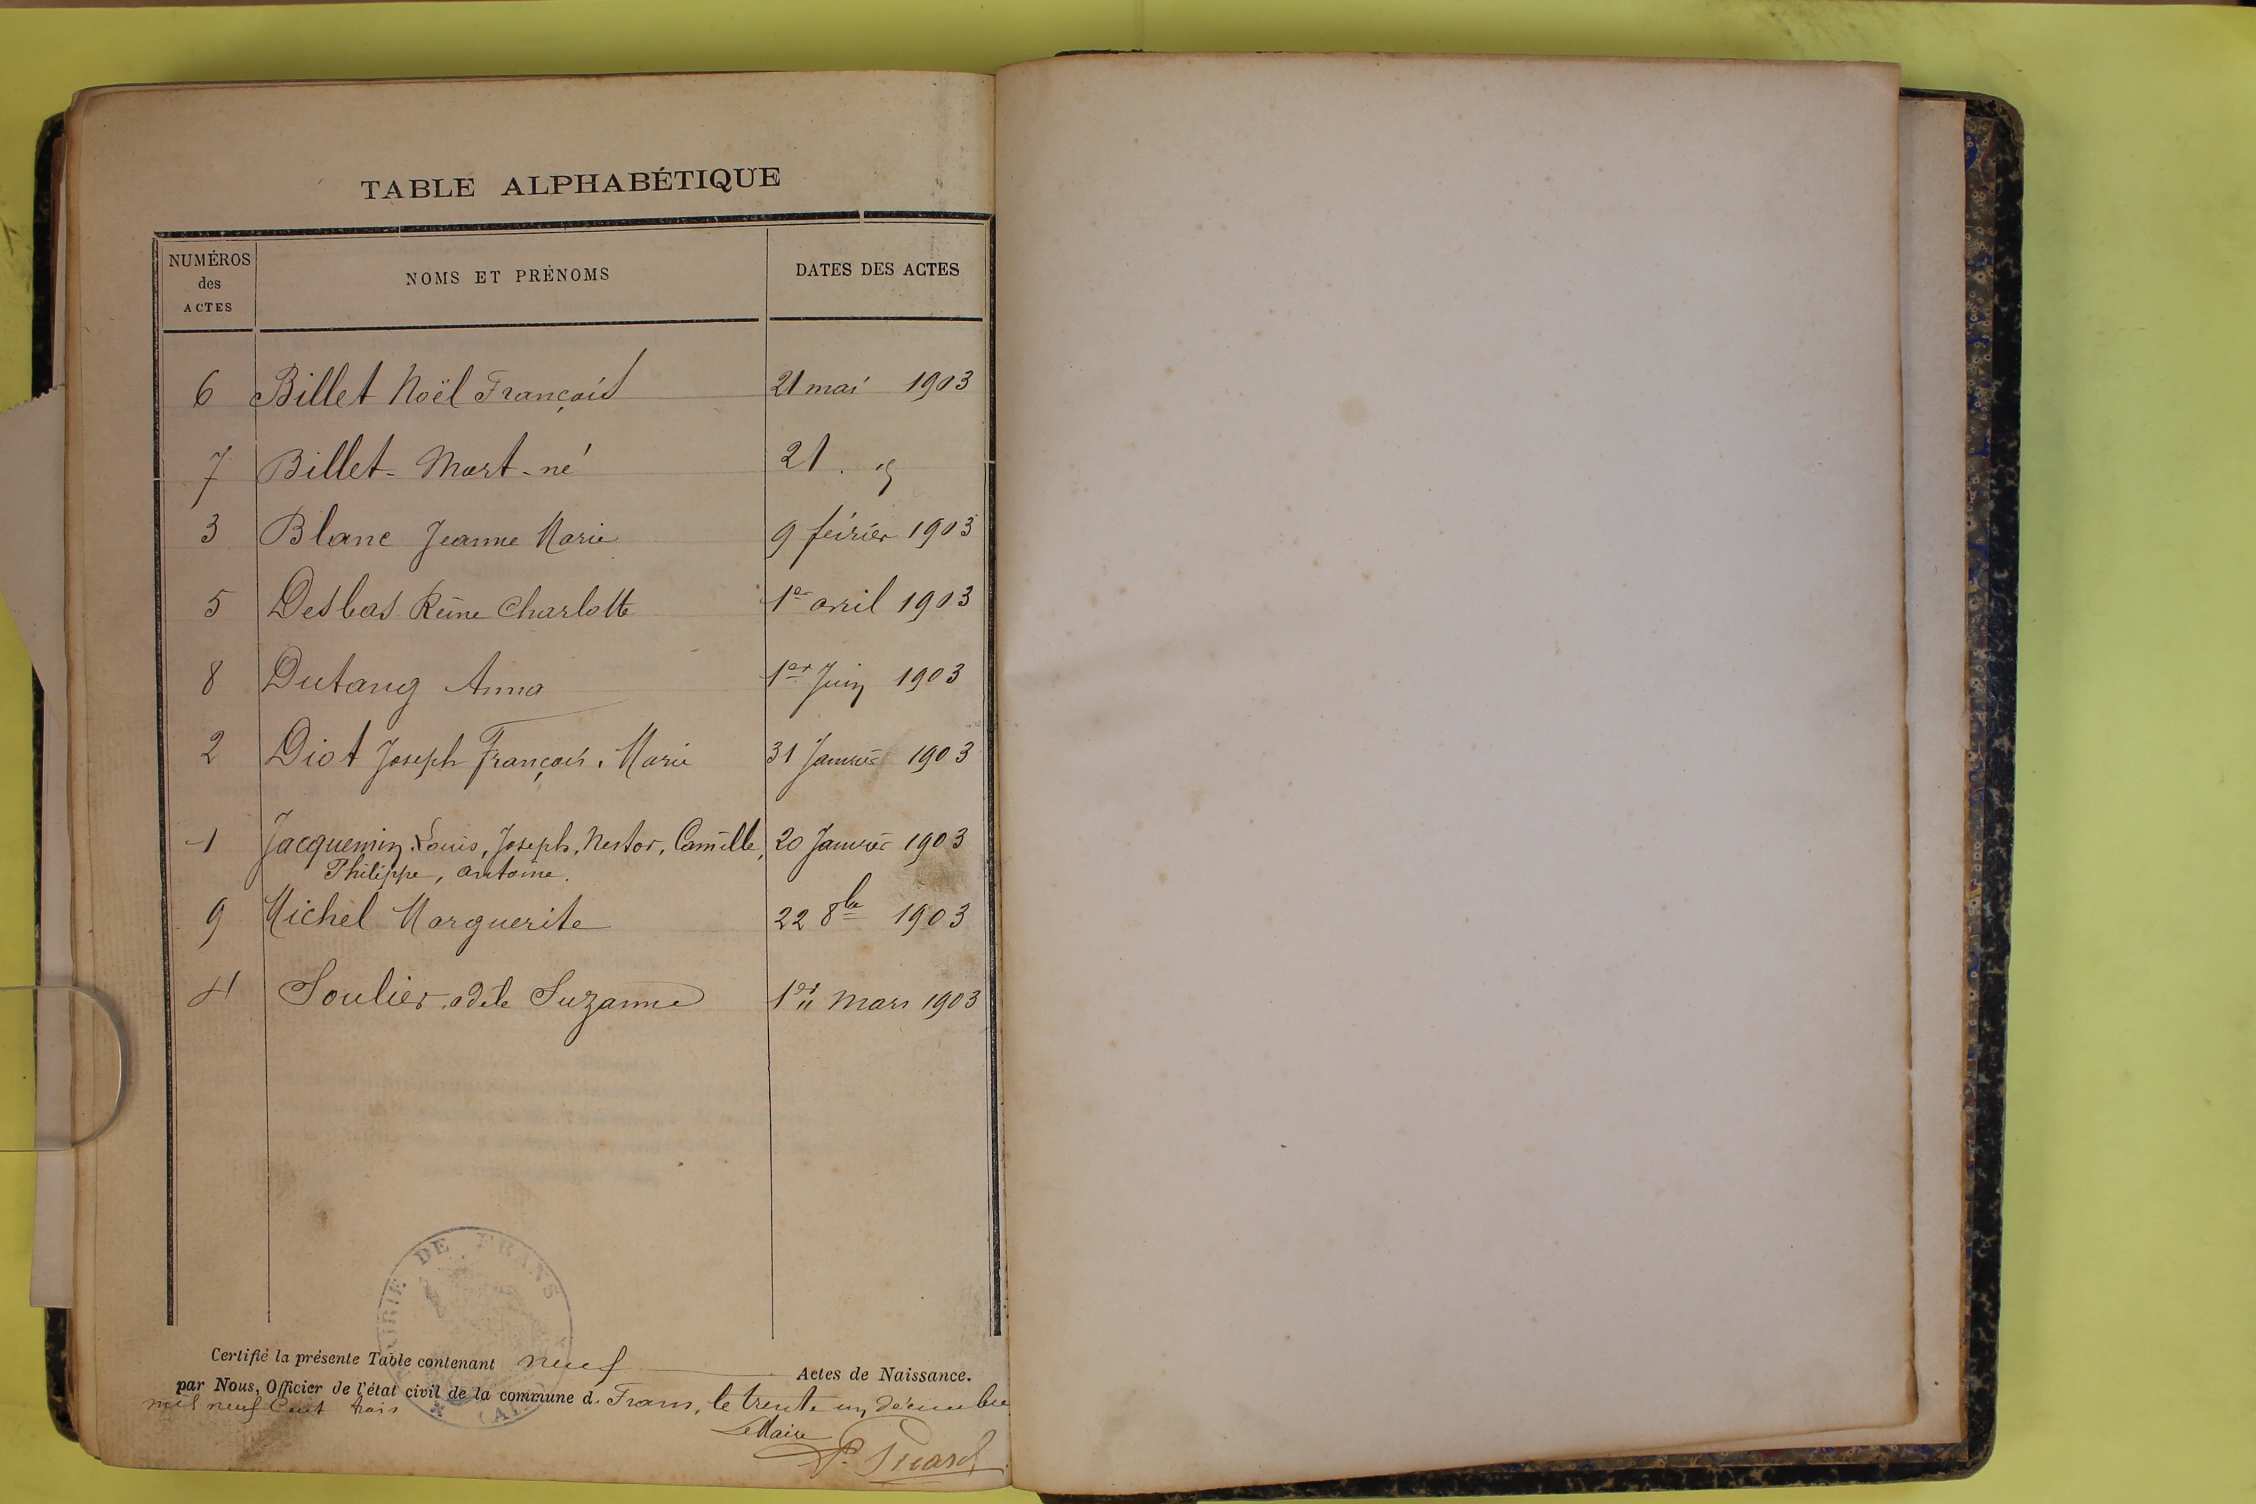 TABLE ALPHABÉTIQUE
NUMÉROS des ACTES NOMS ET PRÉNOMS DATES DES ACTES
6 Billet Noël François 21 mai 1903
7 Billet - Mort-né 21
3 Blanc Jeanne Marie 9 février 1903
5 Desbas Reine Charlotte 1er avril 1903
8 Dutang Anna 1er Juin 1903
2 Diot Joseph François Marie 31 Janvier 1903
1 Jacquemin Louis, Joseph, Nestor, Camille, 20 Janvier 1903
Philippe, antoine.
9 Michel Marguerite 22 8bre 1903
4 Soulier adele Suzanne 1er Mars 1903
MAIRIE DE FRANS
(AIN)
Certifié la présente Table contenant neuf Actes de Naissance.
par Nous, Officier de l'état civil de la commune d. Frans, le trente un décembre
mil neuf Cent trois
Le Maire
P. Picard